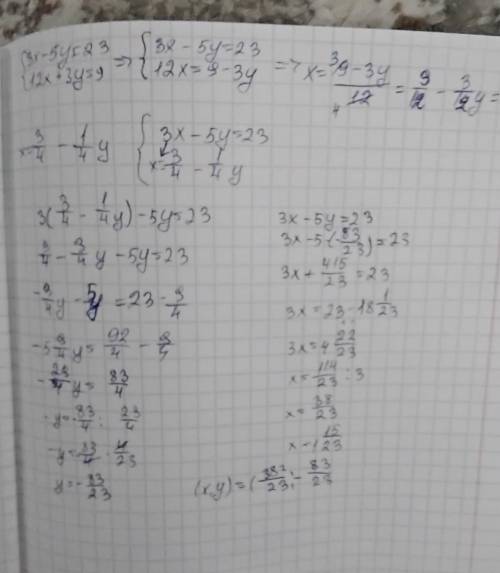 {3x-5y=23 {12x+3y=9 => {3x-5y=23 {12x=9-3y => x=9-3y/12 = 9/12 - 3/12y=
x=3/4 - 1/4y {3x-5y=23 {x=3/4 - 1/4y
3(3/4 - 1/4y)-5y=23
9/4 - 3/4y -5y=23
-3/4y - 5y = 23 - 9/4
-5 3/4y = 92/4 - 9/4
-23/4y = 83/4
-y=83/4 : 23/4
-y=83/4 · 4/23
y=-83/23
3x-5y=23
3x-5·(-83/23)=23
3x+415/23=23
3x=23-18 1/23
3x=4 22/23
x=114/23 : 3
x=38/23
x=1 15/23
(x,y)=(38/23; -83/23